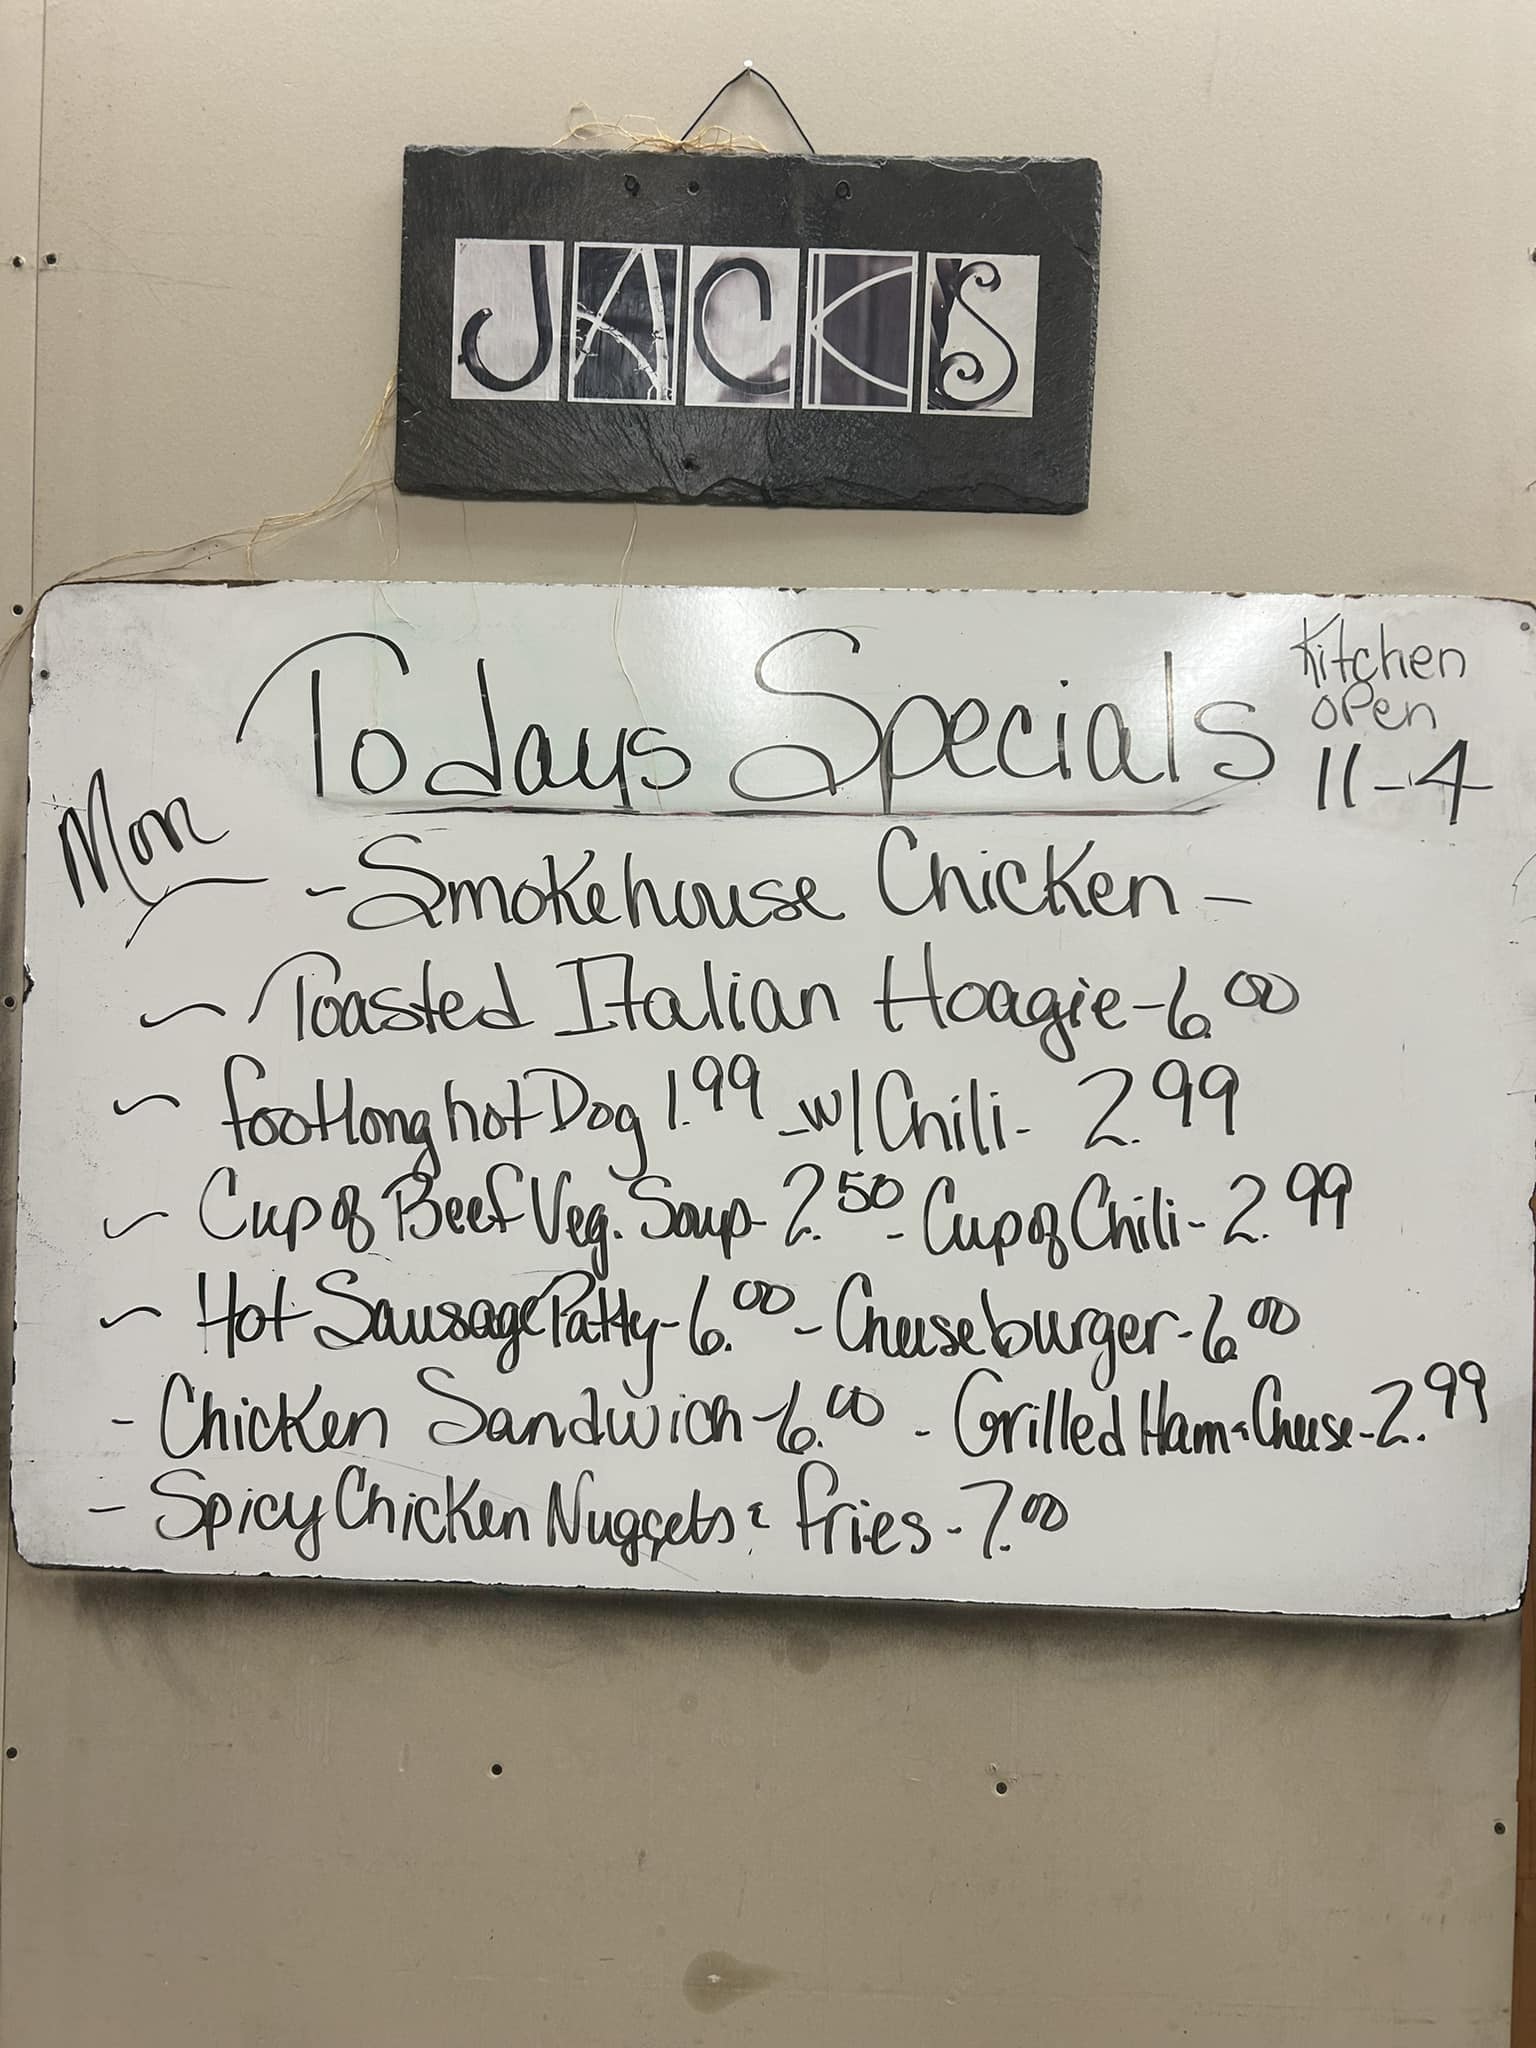 JACKS
Todays Specials
Kitchen
open
11-4
Mon
- Smokehouse Chicken -
~ Toasted Italian Hoagie - 6.00
~ footlong hot Dog 1.99 - w/ Chili - 2.99
~ Cup of Beef Veg. Soup - 2.50 - Cup of Chili - 2.99
~ Hot Sausage Patty - 6.00 - Cheeseburger - 6.00
- Chicken Sandwich - 6.00 - Grilled Ham & Cheese - 2.99
- Spicy Chicken Nuggets & fries - 7.00